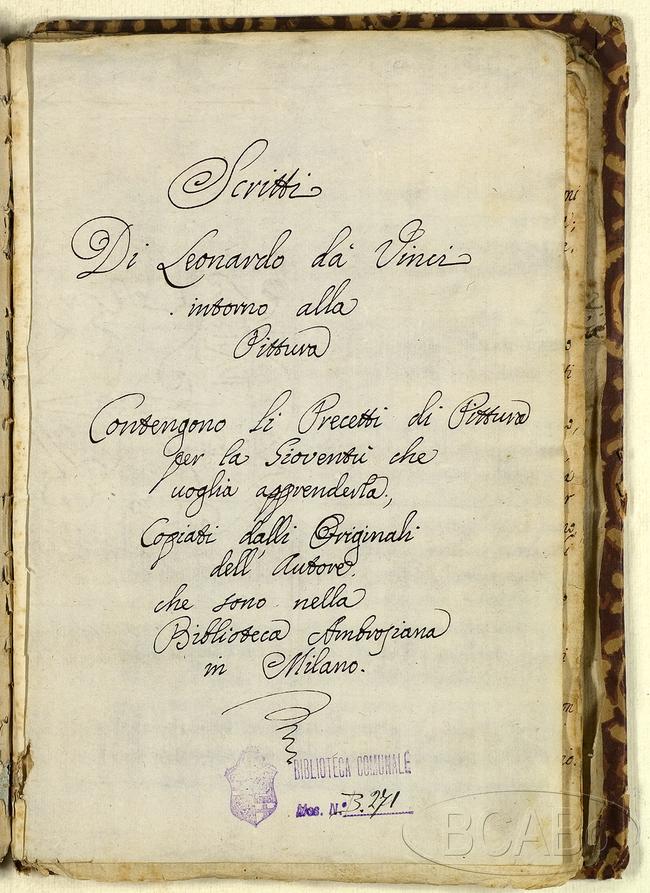 Scritti
Di Leonardo dà Vinci
intorno alla
Pittura
Contengono li Precetti di Pittura
per la Gioventù che
uoglia apprenderla,
Copiati dalli Originali
dell' Autore.
che sono nella
Biblioteca Ambrosiana
in Milano.
BIBLIOTECA COMUNALE
Mos. N.° B.271
BCABo